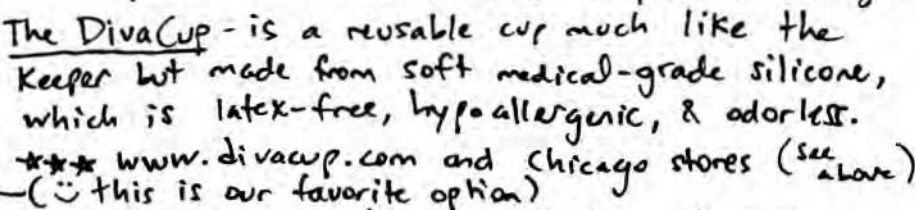 The DivaCup - is a reusable cup much like the
Keeper but made from soft medical-grade silicone,
which is latex-free, hypoallergenic, & odorless.
*** www.divacup.com and Chicago stores (see above)
-(☺ this is our favorite option)